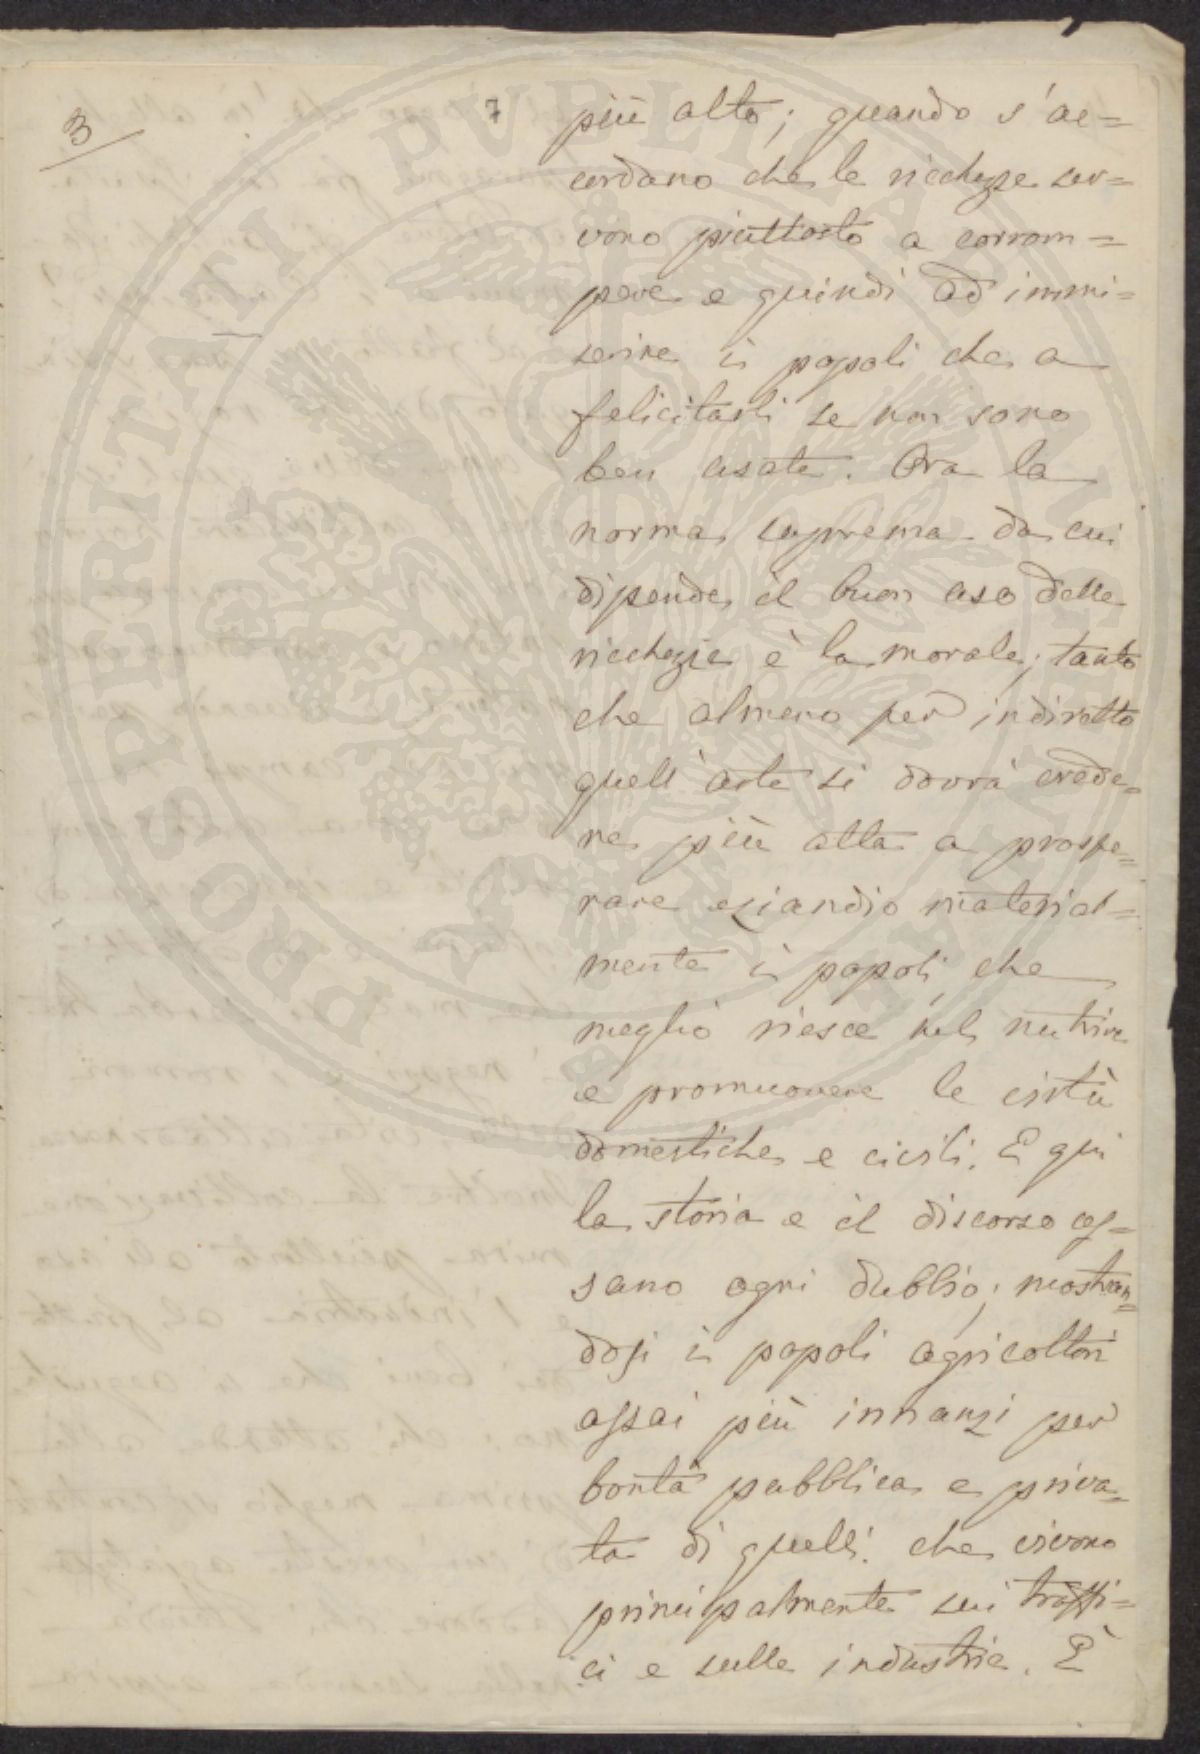 3
7
più alto; quando s'ac=
cordano che le ricchezze ser=
vono piuttosto a corrom=
pere e quindi ad immi=
serire i popoli che a
felicitarli se non sono
ben usate. Ora la
norma suprema da cui
dipende il buon uso delle
ricchezze è la morale; tanto
che almeno per indiretto
quell'arte si dovrà crede=
re più atta a prospe=
rare eziandio material=
mente i popoli, che
meglio riesce nel nutrire
e promuovere le virtù
domestiche e civili. E qui
la storia e il discorso ces=
sano ogni dubbio; mostran=
dosi i popoli agricoltori
assai più innanzi per
bontà pubblica e priva=
ta di quelli che vivono
principalmente sui traffi=
ci e sulle industrie. È
PROSPERITATI PVBLICAE